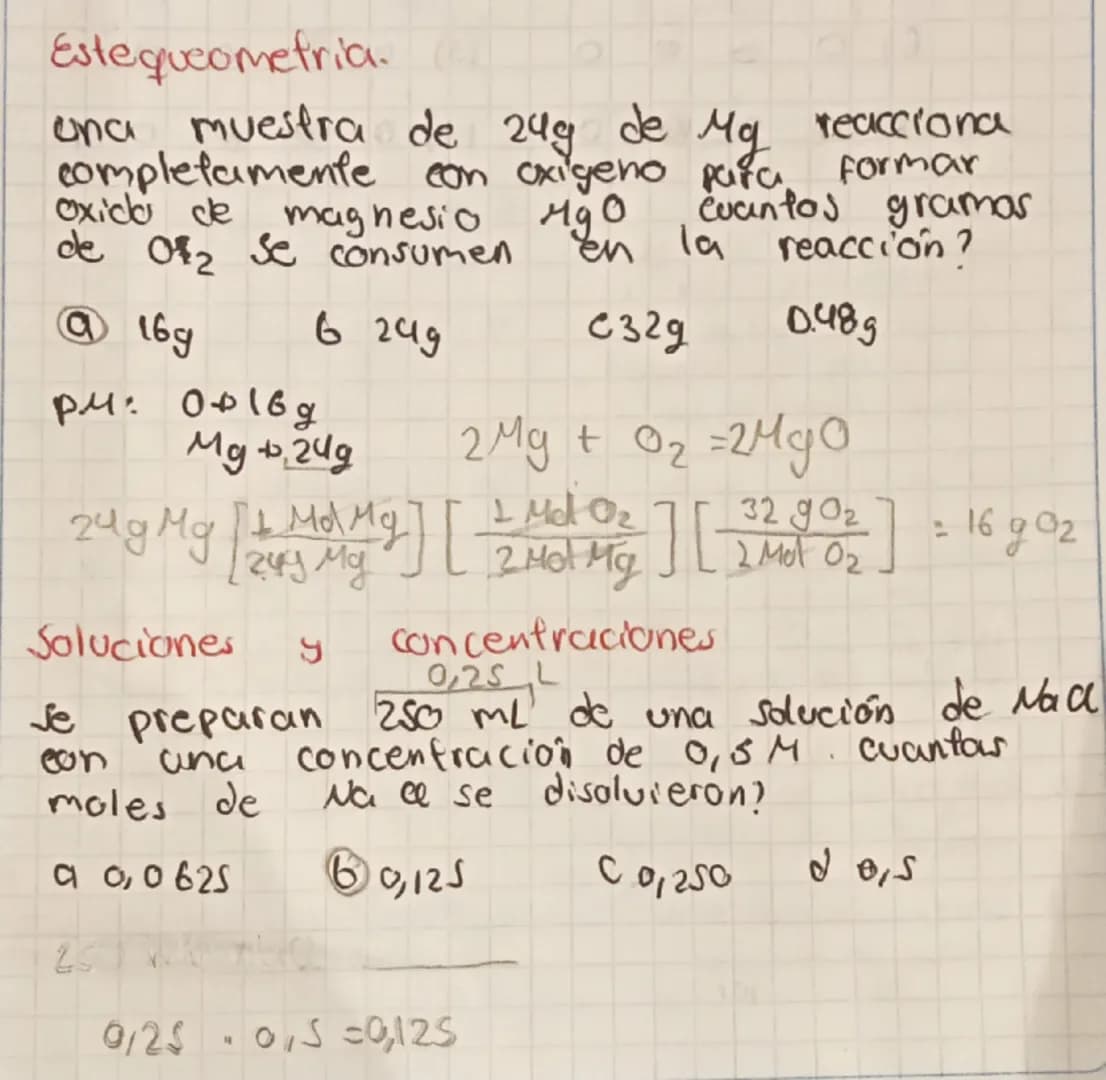 Estequeometria.
una muestra de 24g de Mg reacciona
completamente con oxigeno para formar
oxido de magnesio MgO cuantos gramos
de O2 se consumen en la reacción?
a 16g b 24g c 32g D.48g
PM: O→16g
Mg→24g 2Mg + O2 =2MgO
24g Mg [1 Mol Mg / 24g Mg] [1 Mol O2 / 2 Mol Mg] [32 g O2 / 1 Mol O2] = 16 g O2
Soluciones y concentraciones
0,25 L
se preparan 250 mL de una solución de NaCl
con una concentración de 0,5 M. cuantas
moles de Na Cl se disolvieron?
a 0,0625 b 0,125 C 0,250 d 0,5
0,25 . 0,5 =0,125